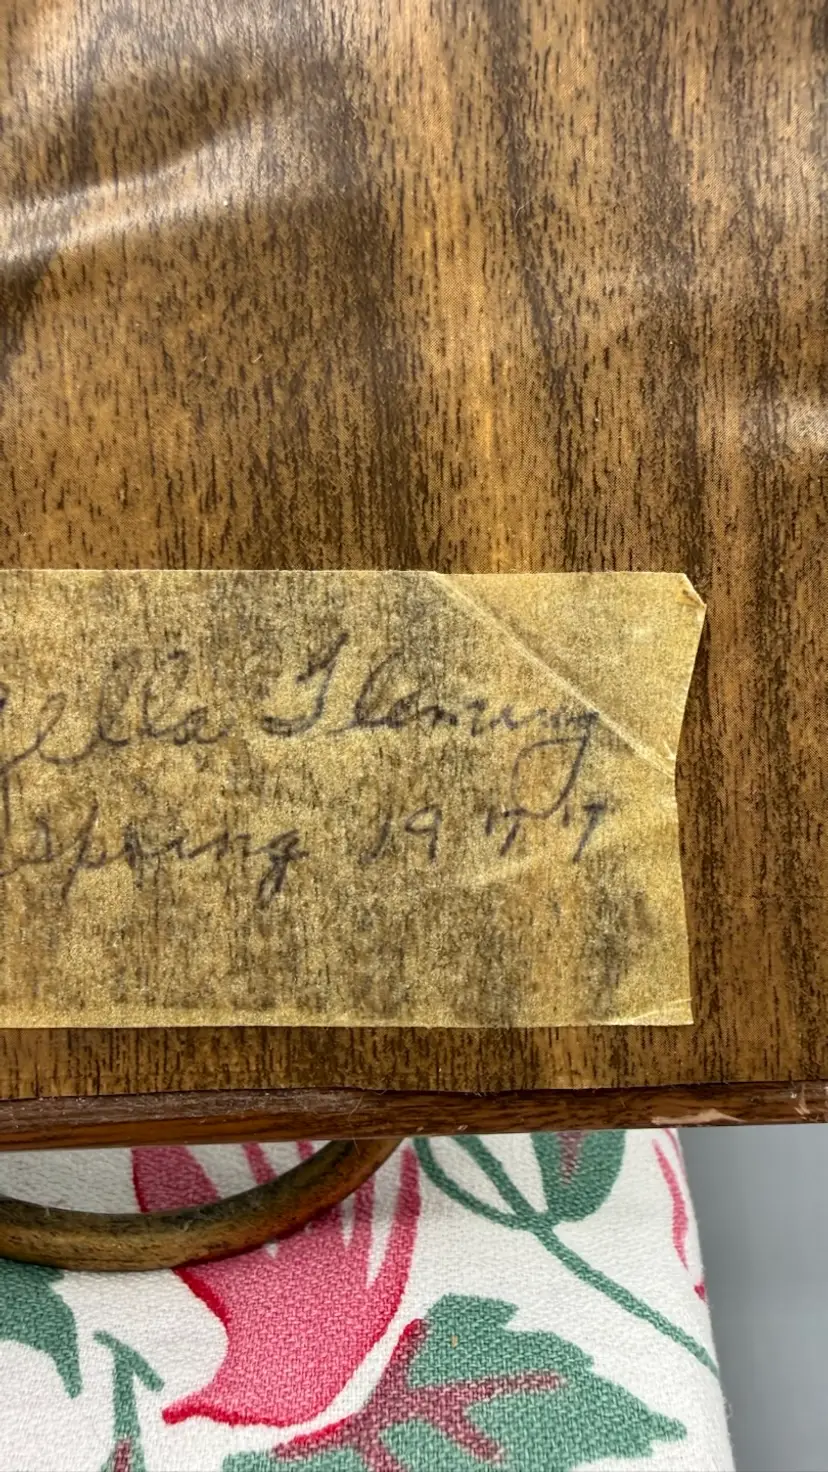 Fleming
Spring 1977